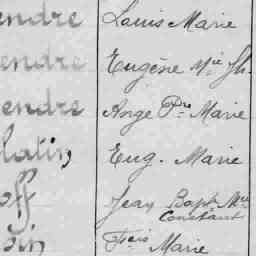 endre Louis Marie
endre Eugène Mie Jh.
endre Ange Pre Marie
latin, Eug. Marie
off Jean Bapt. Mie
Constant
Fçois Marie